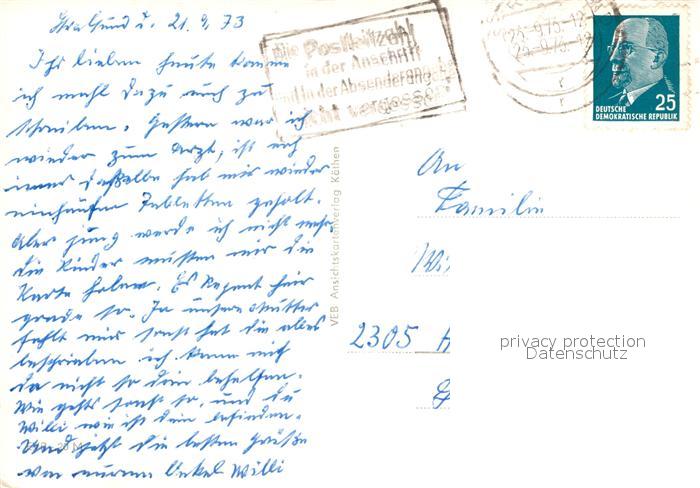 Stralsund d. 21.9.73
Ihr lieben heute komme
ich mahl dazu euch zu
schreiben. Gestern war ich
wieder zum Arzt, ist noch
imer daßselbe hab mir wieder
ein haufen Tabletten geholt.
Aber jung werde ich nicht mehr
die Kinder mußten mir die
Karte holen. Es Regent hier
grade so. Ja unsere Mutter
fehlt mir sonst hat die alles
beschrieben ich kann mich
da nicht so drin behelfen.
Wie gehts sonst so, und du
Willi wie ist dein befinden.
Und jetzt die besten Grüße
von eurem Onkel Willi
Die Postleitzahl
in der Anschrift
und in der Absenderangabe
nicht vergessen
DEUTSCHE
DEMOKRATISCHE REPUBLIK
25
VEB Ansichtskartenverlag Köthen
An
Familie
2305
privacy protection
Datenschutz